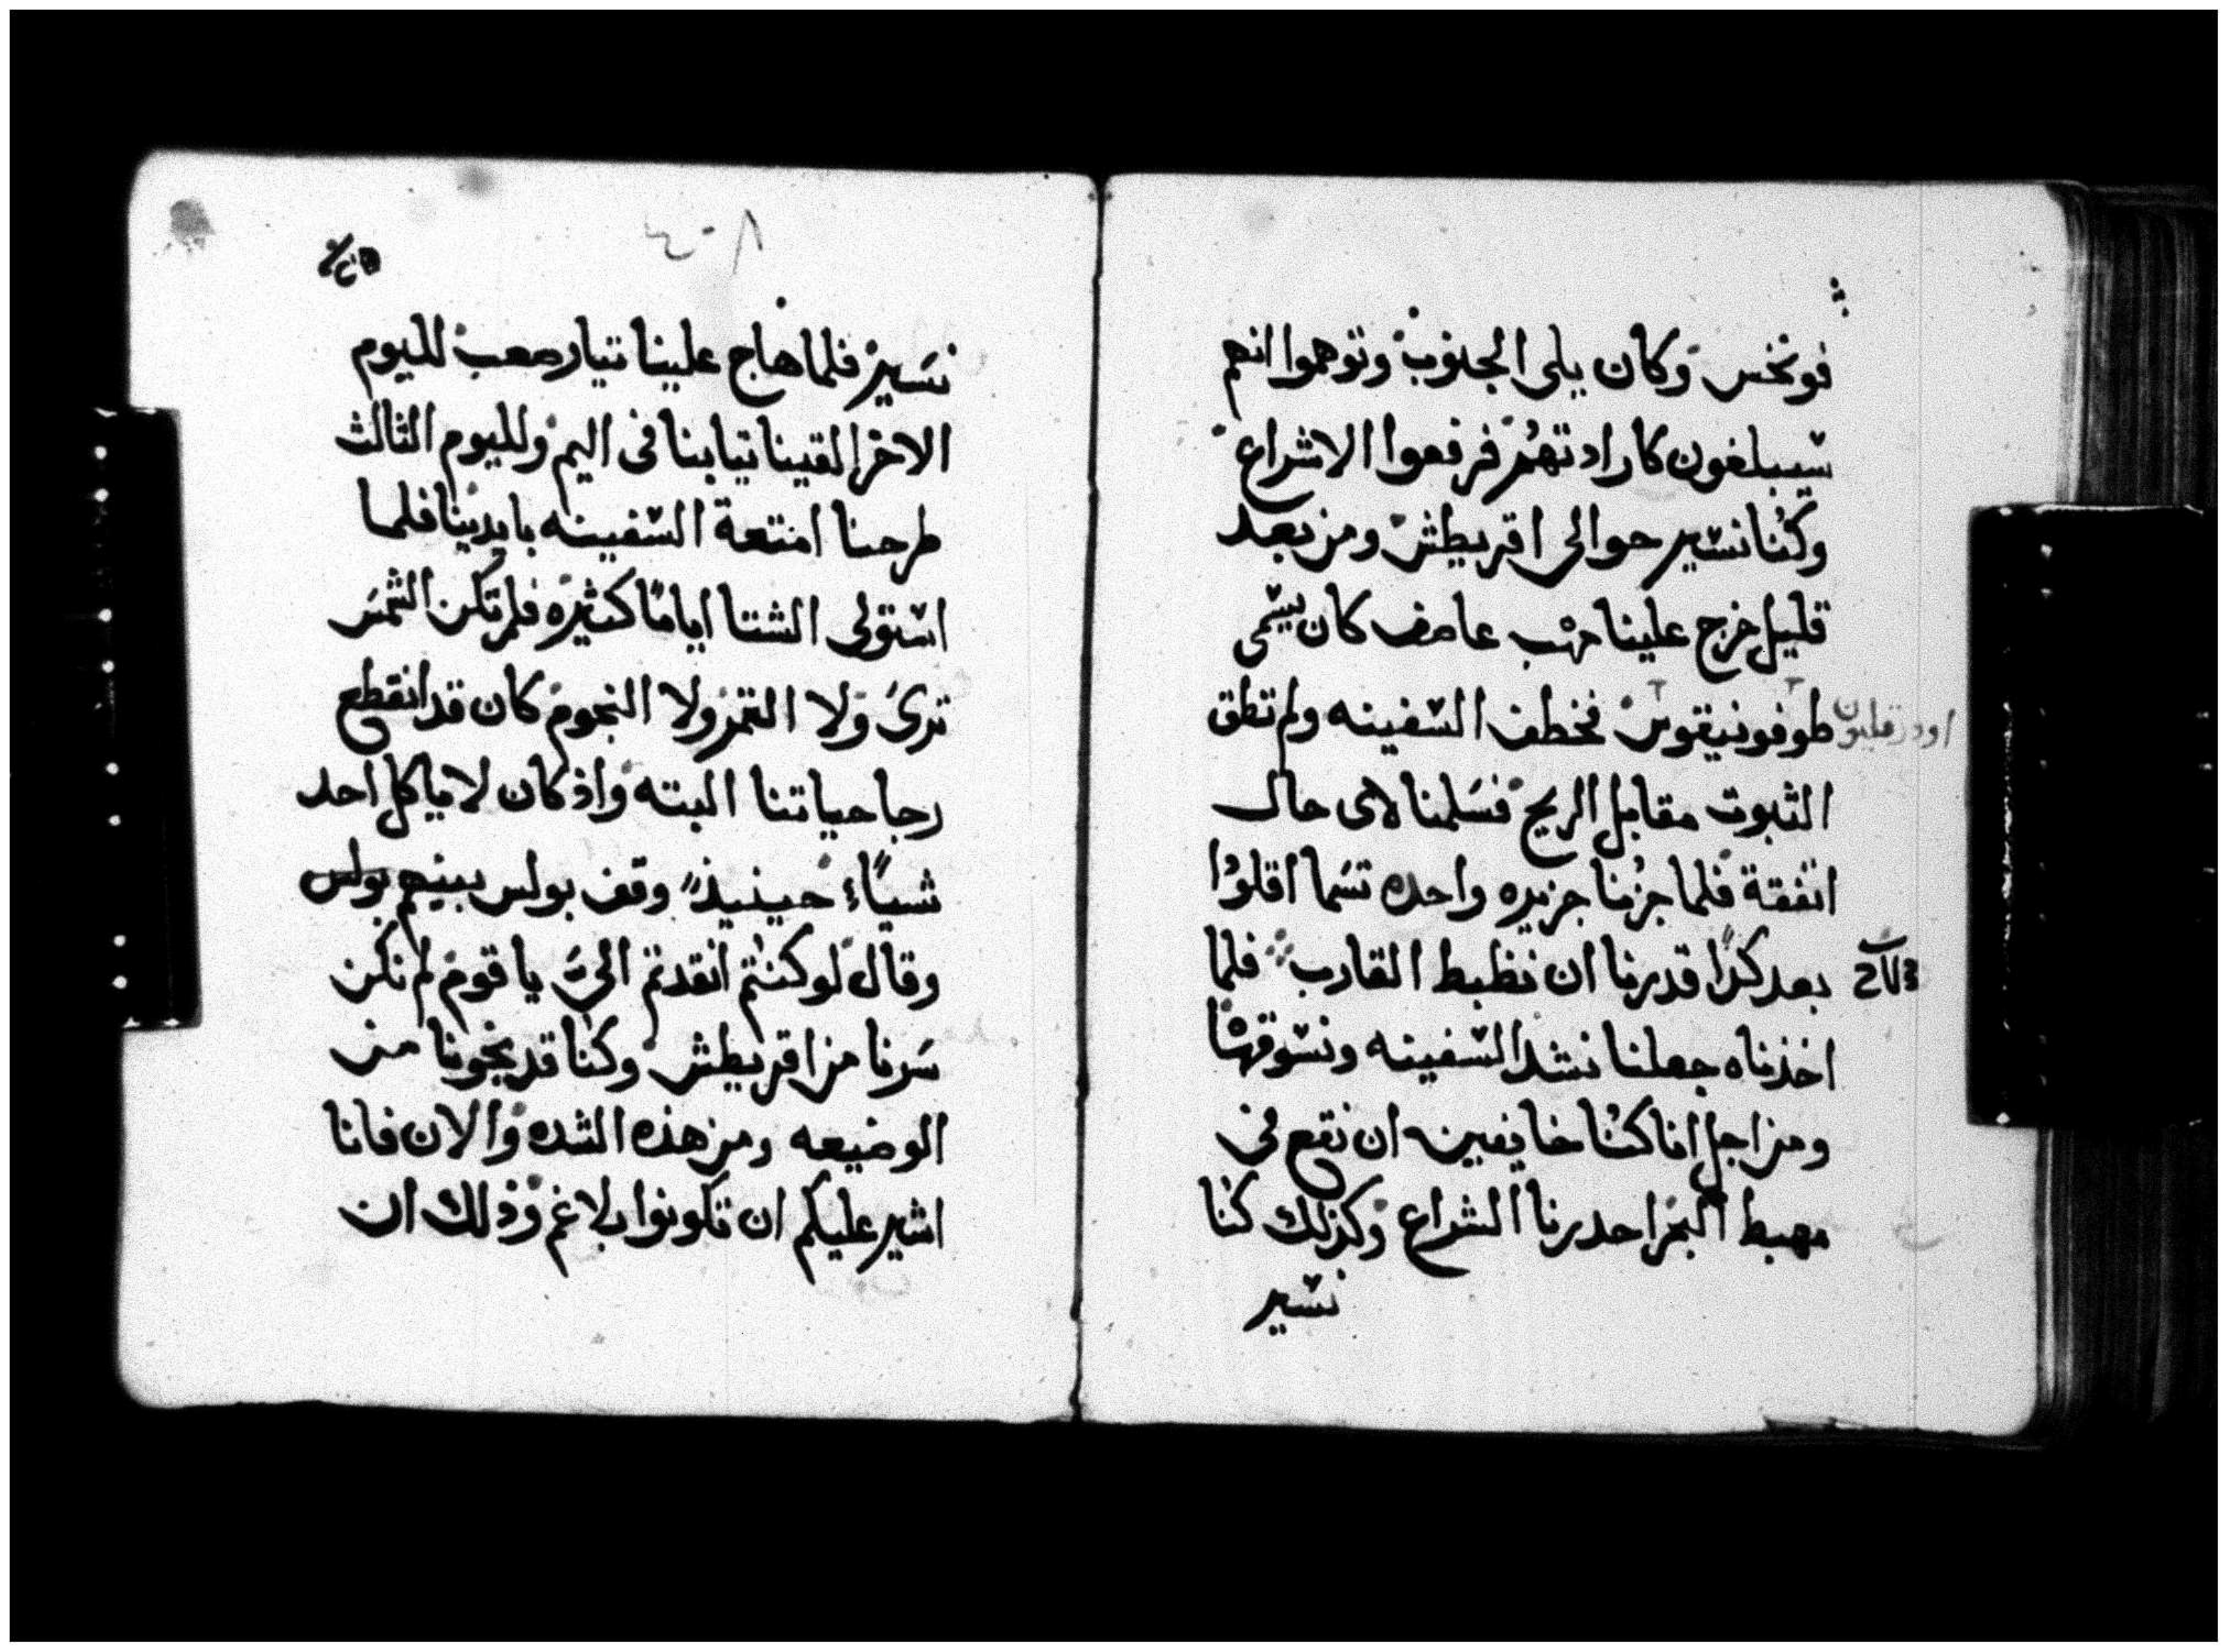 فونخس وكان يلى الجنوب وتوهموا انهم
سيبلغون كارادتهم فرفعوا الاشراع
وكنا نسير حوالى اقريطش ومن بعد
قليل خرج علينا مهب عاصف كان يسمى
طوفونيقوس فخطف السفينه ولم تطق
الثبوت مقابل الريح فسلمنا لاى حال
اتفقة فلما جزنا جزيره واحده تسما اقلوا
بعد كدا قدرنا ان نظبط القارب فلما
اخذناه جعلنا نشد السفينه ونسوقها
ومن اجل انا كنا خايفين ان نقع فى
مهبط البحر احدرنا الشراع وكذلك كنا
نسير
٤٠٨
نسير فلما هاج علينا تيار صعب لليوم
الاخر القينا تيابنا فى اليم ولليوم الثالث
طرحنا امتعة السفينه بايدينا فلما
استولى الشتا اياما كثيره فلم تكن الشمس
ترى ولا القمر ولا النجوم كان قد انقطع
رجا حياتنا البته واذ كان لا ياكل احد
شياء حينيذ وقف بولس بينهم بولس
وقال لو كنتم انقدتم الى يا قوم لم نكن
سرنا من اقريطش وكنا قد نجونا من
الوضيعه ومن هذه الشده والان فانا
اشير عليكم ان تكونوا بلا غم وذلك ان